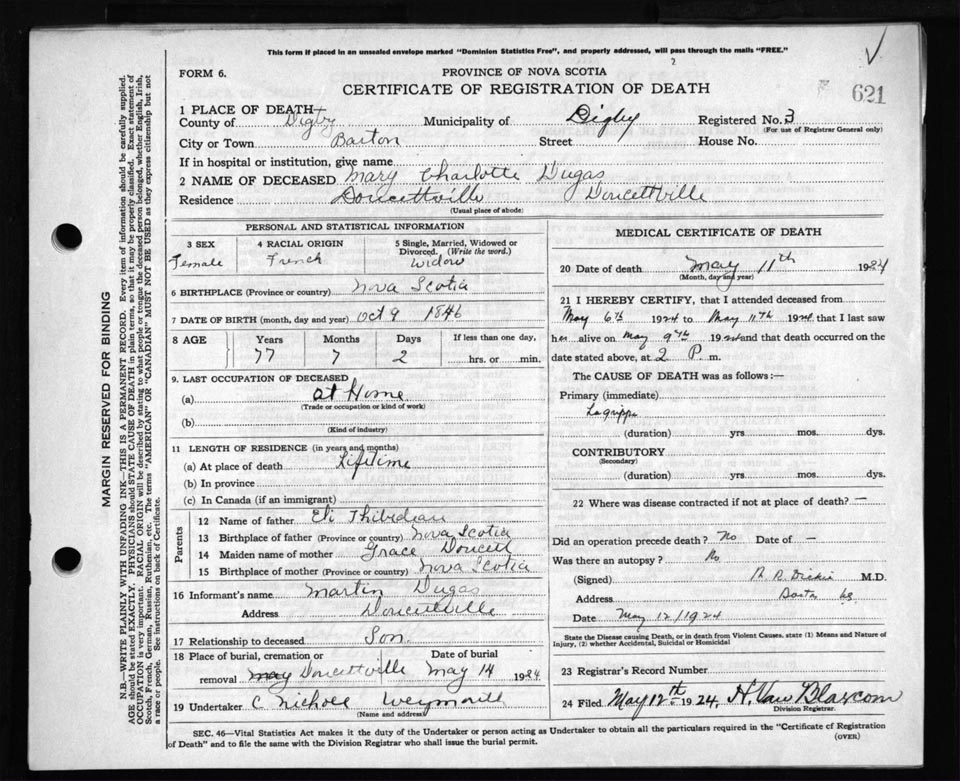 This form if placed in an unsealed envelope marked "Dominion Statistics Free", and properly addressed, will pass through the mails "FREE."
FORM 6.
PROVINCE OF NOVA SCOTIA
CERTIFICATE OF REGISTRATION OF DEATH
621
1 PLACE OF DEATH
County of Digby Municipality of Digby Registered No. 3
(For use of Registrar General only)
City or Town Barton Street House No.
If in hospital or institution, give name
2 NAME OF DECEASED Mary Charlotte Dugas
Residence Doucettville Doucettville
(Usual place of abode)
PERSONAL AND STATISTICAL INFORMATION
3 SEX 4 RACIAL ORIGIN 5 Single, Married, Widowed or Divorced. (Write the word.)
Female French Widow
6 BIRTHPLACE (Province or country) Nova Scotia
7 DATE OF BIRTH (month, day and year) Oct 9 1846
8 AGE Years Months Days If less than one day,
77 7 2 hrs. or min.
9. LAST OCCUPATION OF DECEASED
(a) at Home
(Trade or occupation or kind of work)
(b)
(Kind of industry)
11 LENGTH OF RESIDENCE (in years and months)
(a) At place of death Lifetime
(b) In province
(c) In Canada (if an immigrant)
Parents
12 Name of father Eli Thibedeau
13 Birthplace of father (Province or country) Nova Scotia
14 Maiden name of mother Grace Doucett
15 Birthplace of mother (Province or country) Nova Scotia
16 Informant's name Martin Dugas
Address Doucettville
17 Relationship to deceased Son.
18 Place of burial, cremation or removal Date of burial
may Doucettville May 14 1924
19 Undertaker C Nicholl Weymouth
(Name and address)
MEDICAL CERTIFICATE OF DEATH
20 Date of death May 11th 1924
(Month, day and year)
21 I HEREBY CERTIFY, that I attended deceased from
May 6th 1924 to May 11th 1924 that I last saw
her alive on May 9th 1924 and that death occurred on the
date stated above, at 2 P. m.
The CAUSE OF DEATH was as follows:—
Primary (immediate)
Lagrippe
(duration) yrs mos. dys.
CONTRIBUTORY
(Secondary)
(duration) yrs. mos. dys.
22 Where was disease contracted if not at place of death? —
Did an operation precede death? No Date of —
Was there an autopsy? No
(Signed) Dickie M.D.
Address
Date May 12/1924
State the Disease causing Death, or in death from Violent Causes, state (1) Means and Nature of Injury, (2) whether Accidental, Suicidal or Homicidal
23 Registrar's Record Number
24 Filed May 12th 1924, H. Van Blarcom
Division Registrar.
SEC. 46—Vital Statistics Act makes it the duty of the Undertaker or person acting as Undertaker to obtain all the particulars required in the "Certificate of Registration
of Death" and to file the same with the Division Registrar who shall issue the burial permit.
(OVER)
MARGIN RESERVED FOR BINDING
N.B.—WRITE PLAINLY WITH UNFADING INK—THIS IS A PERMANENT RECORD. Every item of information should be carefully supplied.
AGE should be stated EXACTLY. PHYSICIANS should STATE CAUSE OF DEATH in plain terms, so that it may be properly classified. Exact statement of
OCCUPATION is very important. RACIAL ORIGIN will be described by stating to what people or tongue the deceased person belonged, whether English, Irish,
Scotch, French, German, Russian, Ruthenian, etc. The terms "AMERICAN" or "CANADIAN" MUST NOT BE USED as they express citizenship but not
a race or people. See instructions on back of Certificate.